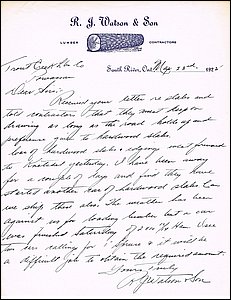 R. J. Watson & Son
LUMBER CONTRACTORS
South River, Ont. 22nd, 192
Trout Creek
Dear Sirs:-
Received your letter re slabs and
told contractors that they must keep on
drawing as long as the road holds and
quite to hardwood slabs.
of hardwood slabs & edgings went forward
to yesterday. I have been away
for a couple of days and find they have
started another car of hardwood slabs. Can
we ship them also. The weather has been
against us for loading lumber but a car
was finished Saturday
calling for & it will be
a difficult job to obtain the required amount.
Yours truly
R J Watson & Son